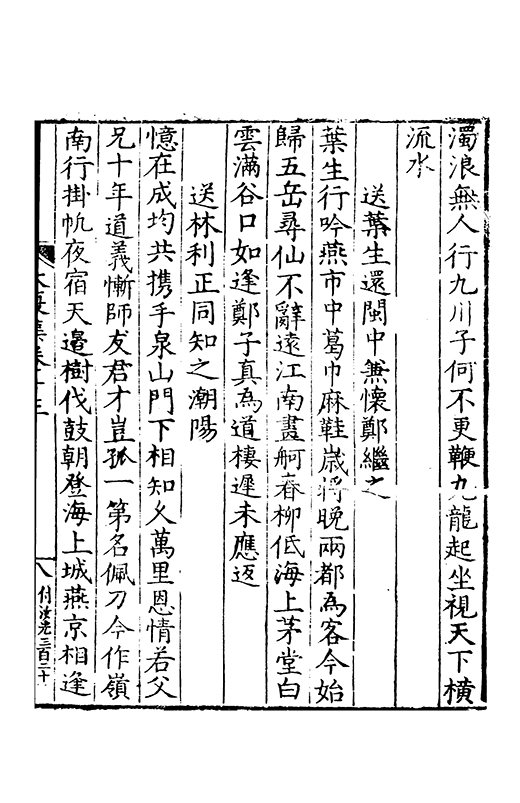 濁浪無人行九川子何不更鞭九龍起坐視天下橫
流水
送葉生還閩中兼懷鄭繼之
葉生行吟燕市中葛巾麻鞋歲將晚兩都為客今始
歸五岳尋仙不辭遠江南畫舸春柳低海上茅堂白
雲滿谷口如逢鄭子真為道棲遲未應返
送林利正同知之潮陽
憶在成均共携手泉山門下相知久萬里恩情若父
兄十年道義慚師友君才豈孤一第名佩刀今作嶺
南行掛帆夜宿天邉樹伐鼓朝登海上城燕京相逢
大復集卷十三
八
付汝光三百二十